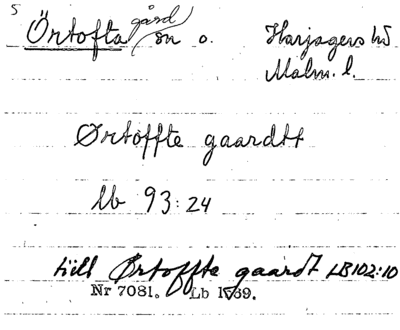 5
Örtofta gård sn o. Harjagers hd
Malm. l.
Ørtoffte gaardtt
lb 93:24
till Ørtoffte gaardt LB102:10
Nr 7081. Lb 1569.